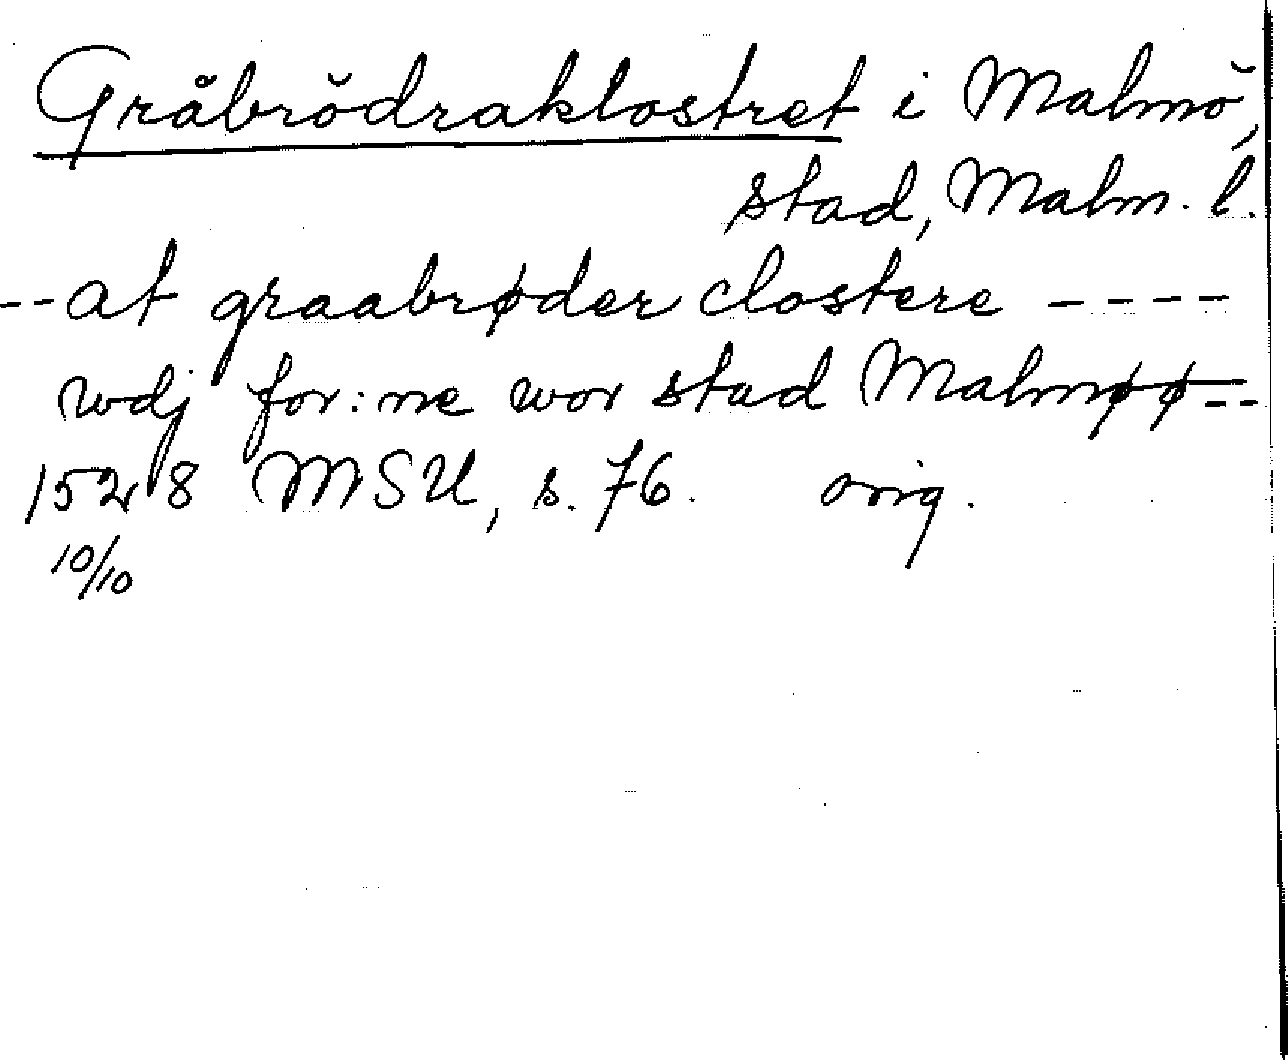 Gråbrödraklostret i Malmö,
stad, Malm. l.
-- at graabrøder clostere ----
wdj for:ne wor stad Malmøø --
1528 MSU, s. 76. orig.
10/10